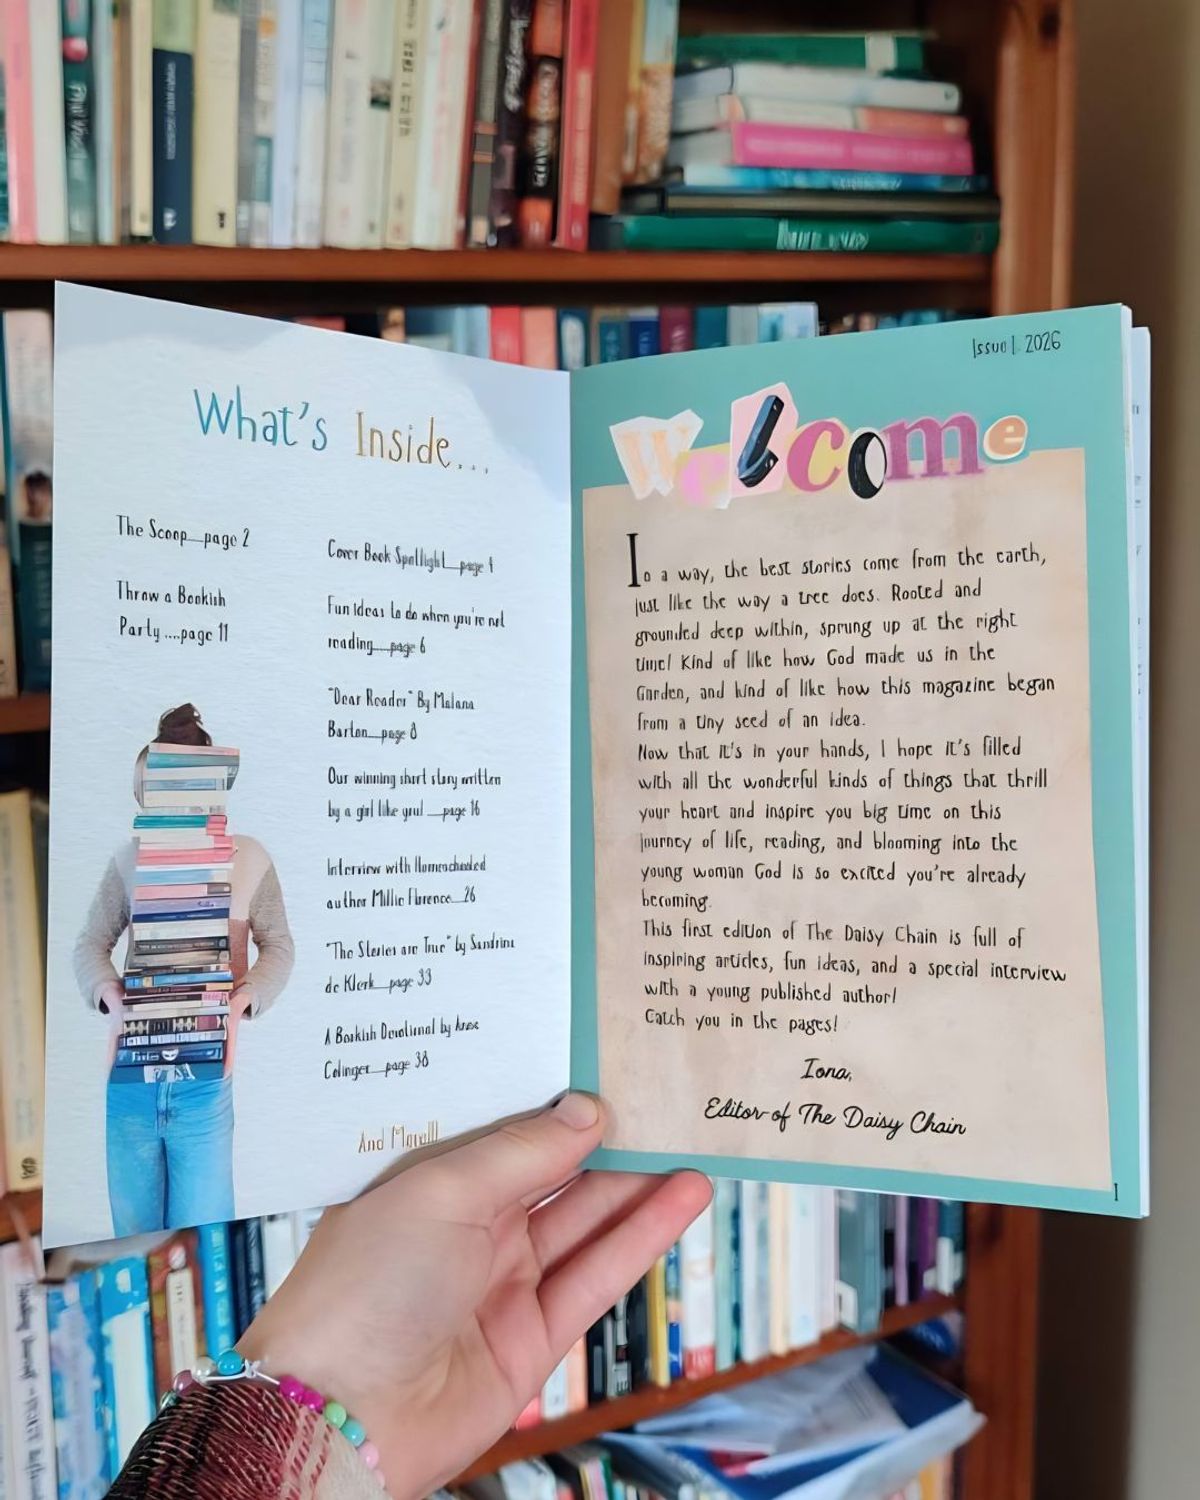 What's Inside...
The Scoop__page 2
Throw a Bookish
Party ....page 11
Cover Book Spotlight__page 4
Fun Ideas to do when you're not
reading....page 6
"Dear Reader" By Malana
Barton__page 8
Our winning short story written
by a girl like you! __page 16
Interview with Homeschooled
author Millie Florence__26
"The Stories are True" by Sandrina
de Klerk__page 33
A Bookish Devotional by
page 38
And More!!!
Issue 1. 2026
Welcome
In a way, the best stories come from the earth,
just like the way a tree does. Rooted and
grounded deep within, sprung up at the right
time! Kind of like how God made us in the
Garden, and kind of like how this magazine began
from a tiny seed of an idea.
Now that it's in your hands, I hope it's filled
with all the wonderful kinds of things that thrill
your heart and inspire you big time on this
journey of life, reading, and blooming into the
young woman God is so excited you're already
becoming.
This first edition of The Daisy Chain is full of
inspiring articles, fun ideas, and a special interview
with a young published author!
Catch you in the pages!
Iona,
Editor of The Daisy Chain
1